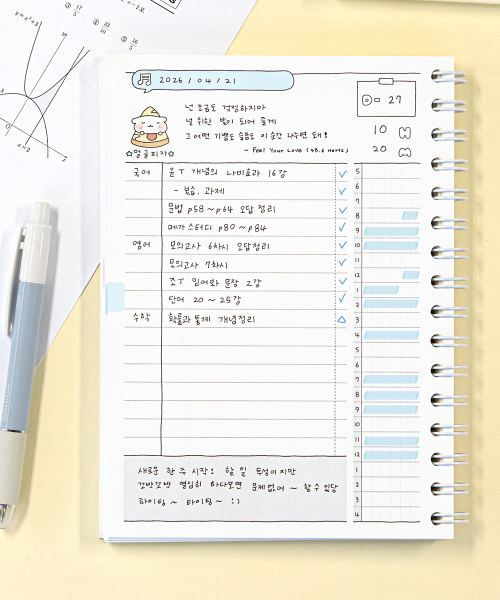 y = x² + 2
④ 17/5
④ 33/10
③ 16/5
2026 / 04 / 21
27
넌 조금도 걱정하지마
널 위한 빛이 되어 줄게
그 어떤 기쁨도 슬픔도 이 순간 나누면 돼!
- Feel Your Love (48.6 Hertz)
10 H
20 M
☆얼굴피자☆
국어 윤T 개념의 나비효과 16강
- 복습, 과제
문법 p58 ~ p64 오답 정리
메가스터디 p80 ~ p84
영어 모의고사 6차시 오답정리
모의고사 7차시
조T 믿어봐 문장 2강
단어 20 ~ 25강
수학 확률과 통계 개념정리
5
6
7
8
9
10
11
12
1
2
3
4
5
6
7
8
9
10
11
12
1
2
3
4
새로운 한 주 시작! 할 일 투성이지만
차근차근 열심히 하다보면 문제없어 ~ 할 수 있당
파이팅 ~ 파이팅 ~ :)